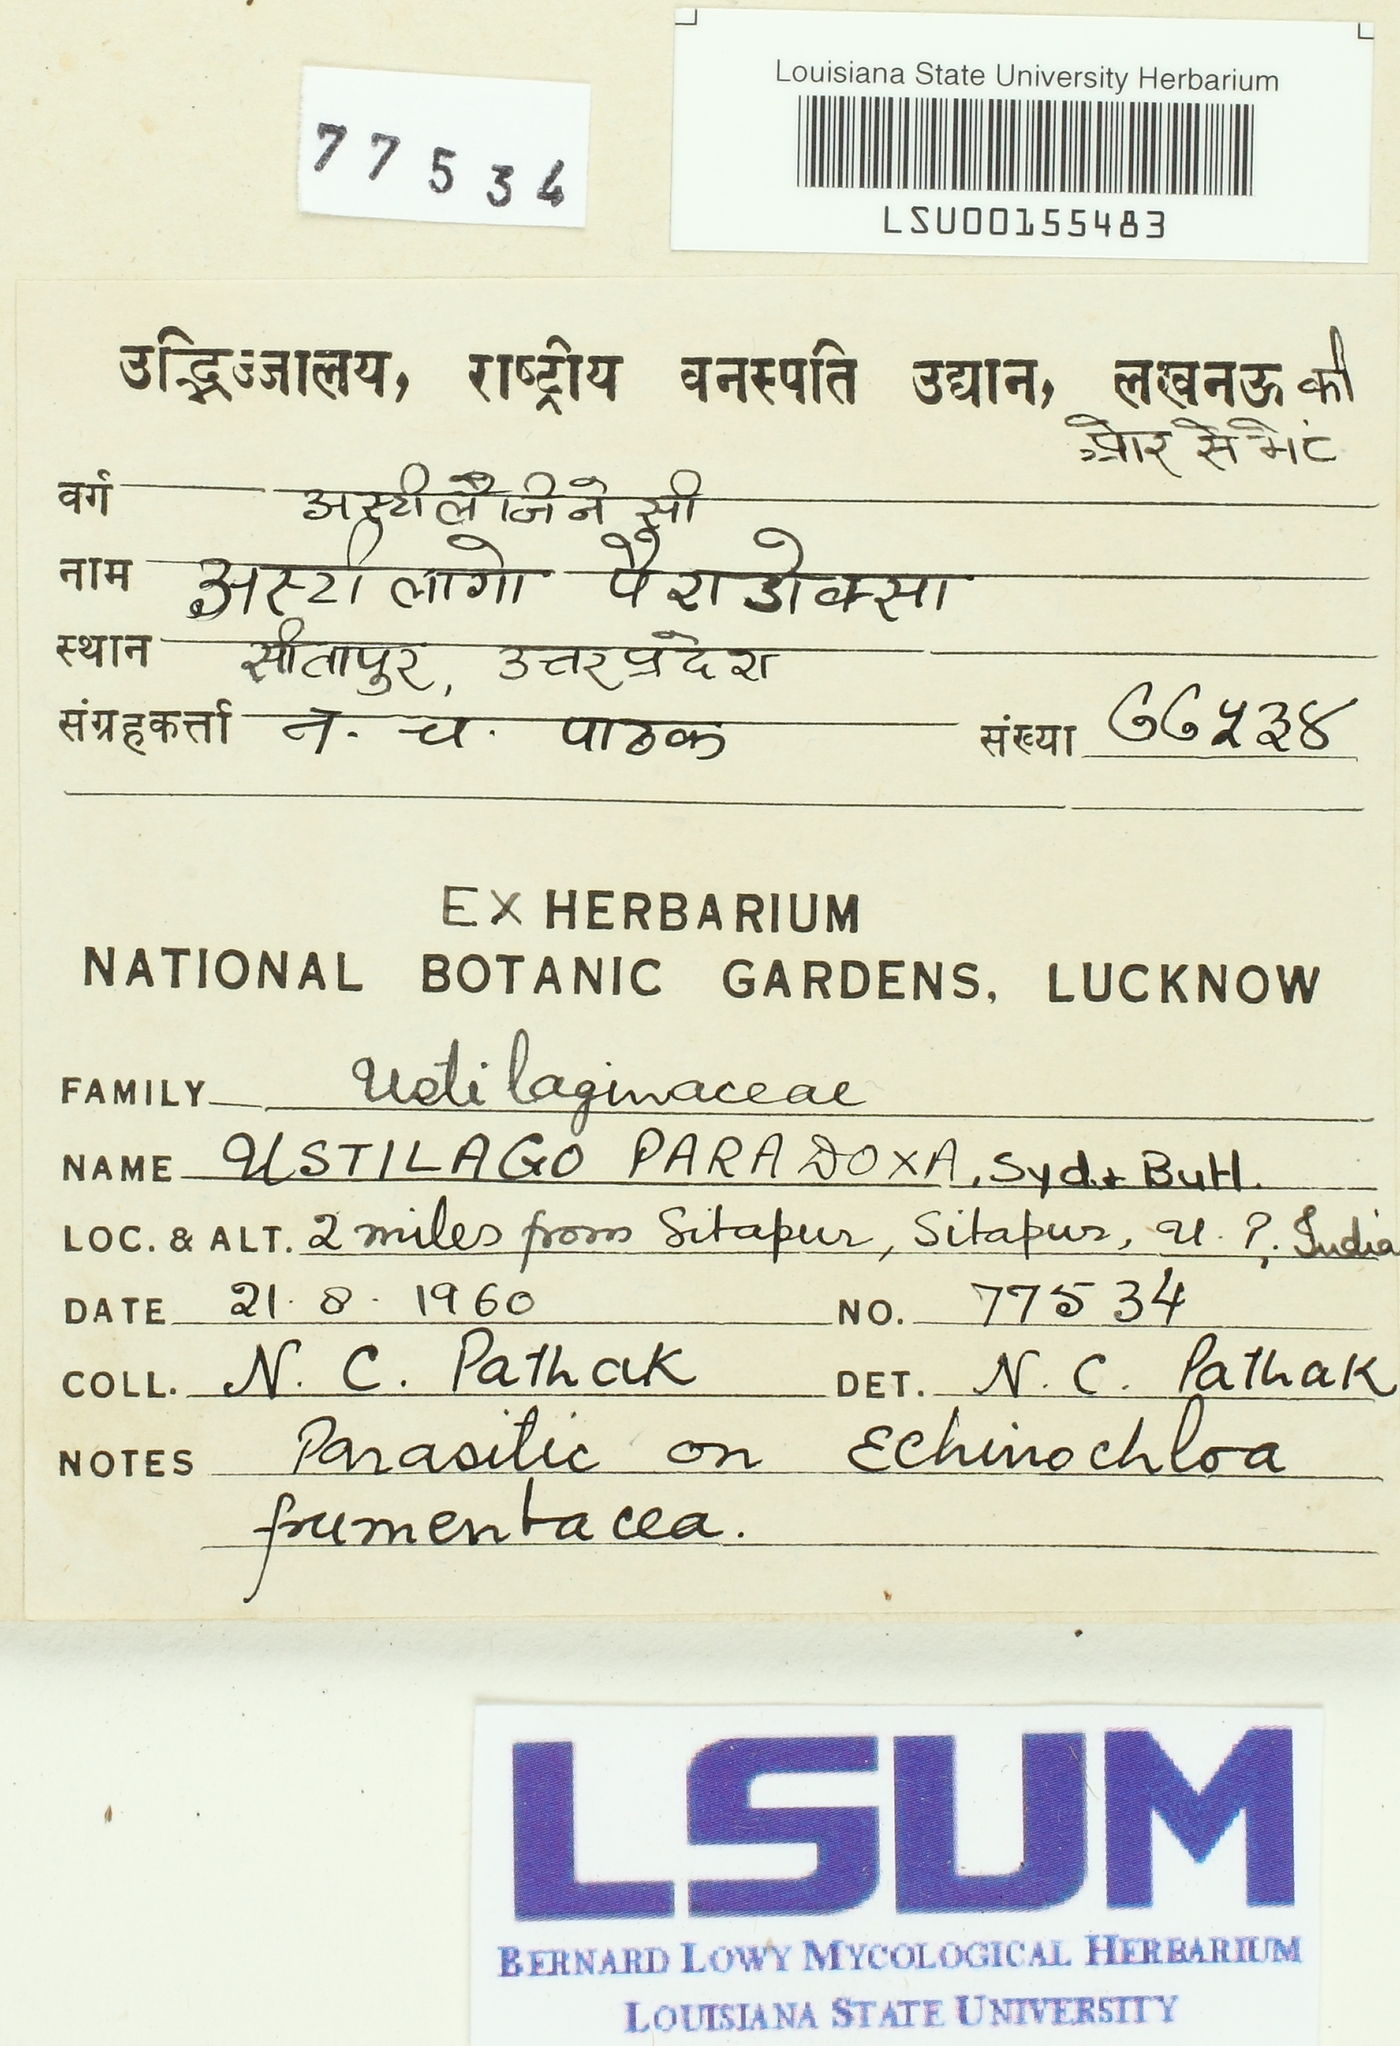 Louisiana State University Herbarium
77534
LSU00155483
उद्भिज्जालय, राष्ट्रीय वनस्पति उद्यान, लखनऊ की
ओर से भेंट
वर्ग अस्टीलैजिनेसी
नाम अस्टीलागो पैराडोक्सा
स्थान सीतापुर, उत्तर प्रदेश
संग्रहकर्त्ता न. च. पाठक संख्या ७७५३४
EX HERBARIUM
NATIONAL BOTANIC GARDENS, LUCKNOW
FAMILY Ustilaginaceae
NAME USTILAGO PARADOXA, Syd. & Butl.
LOC. & ALT. 2 miles from Sitapur, Sitapur, U. P. India
DATE 21. 8. 1960 NO. 77534
COLL. N. C. Pathak DET. N. C. Pathak
NOTES Parasitic on Echinochloa
frumentacea.
LSUM
BERNARD LOWY MYCOLOGICAL HERBARIUM
LOUISIANA STATE UNIVERSITY